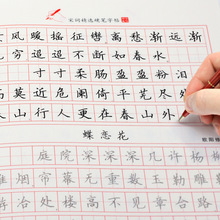 宋词精选硬笔字帖
风暖摇征辔离愁渐远渐
穷迢迢不断如春水
寸寸柔肠盈盈粉泪
危阑倚平芜尽处
山行人更在春山外
蝶恋花
庭院深深深几许杨
烟帘幕无重数玉勒雕
游冶处楼高不见章台路